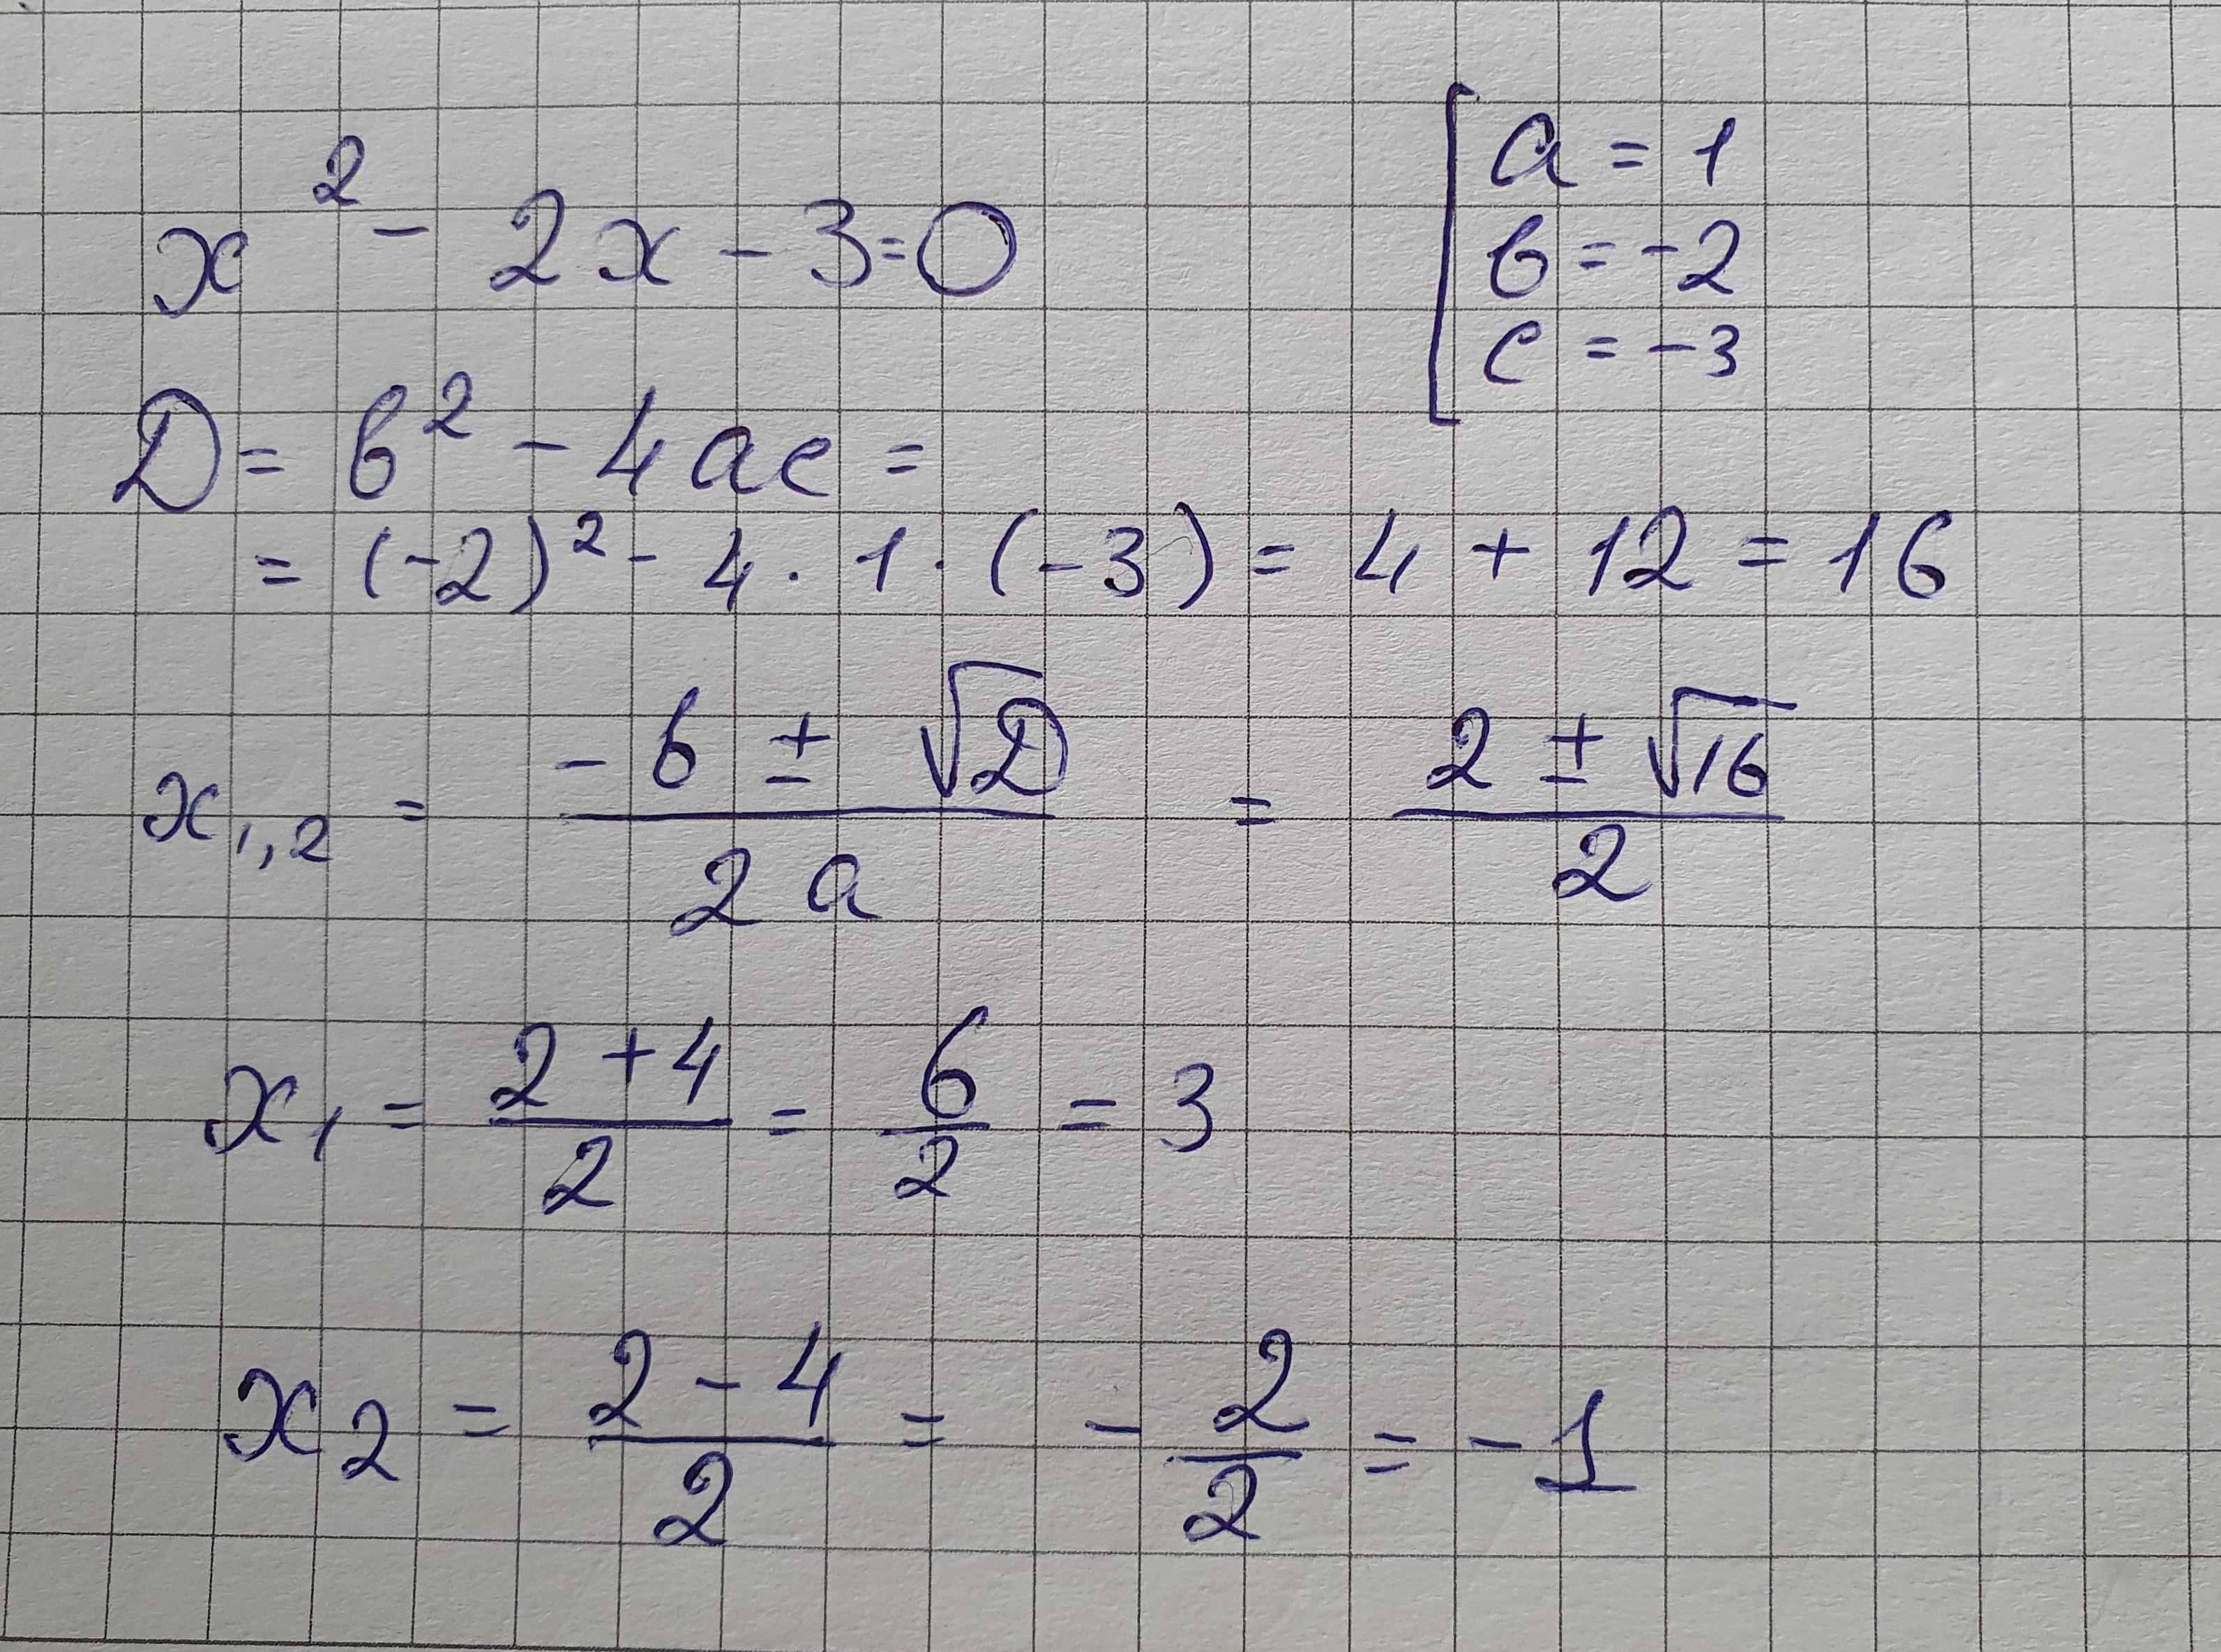 x² - 2x - 3 = 0
a = 1
b = -2
c = -3
D = b² - 4ac =
= (-2)² - 4 · 1 · (-3) = 4 + 12 = 16
x₁,₂ = (-b ± √D)/(2a) = (2 ± √16)/2
x₁ = (2 + 4)/2 = 6/2 = 3
x₂ = (2 - 4)/2 = -2/2 = -1